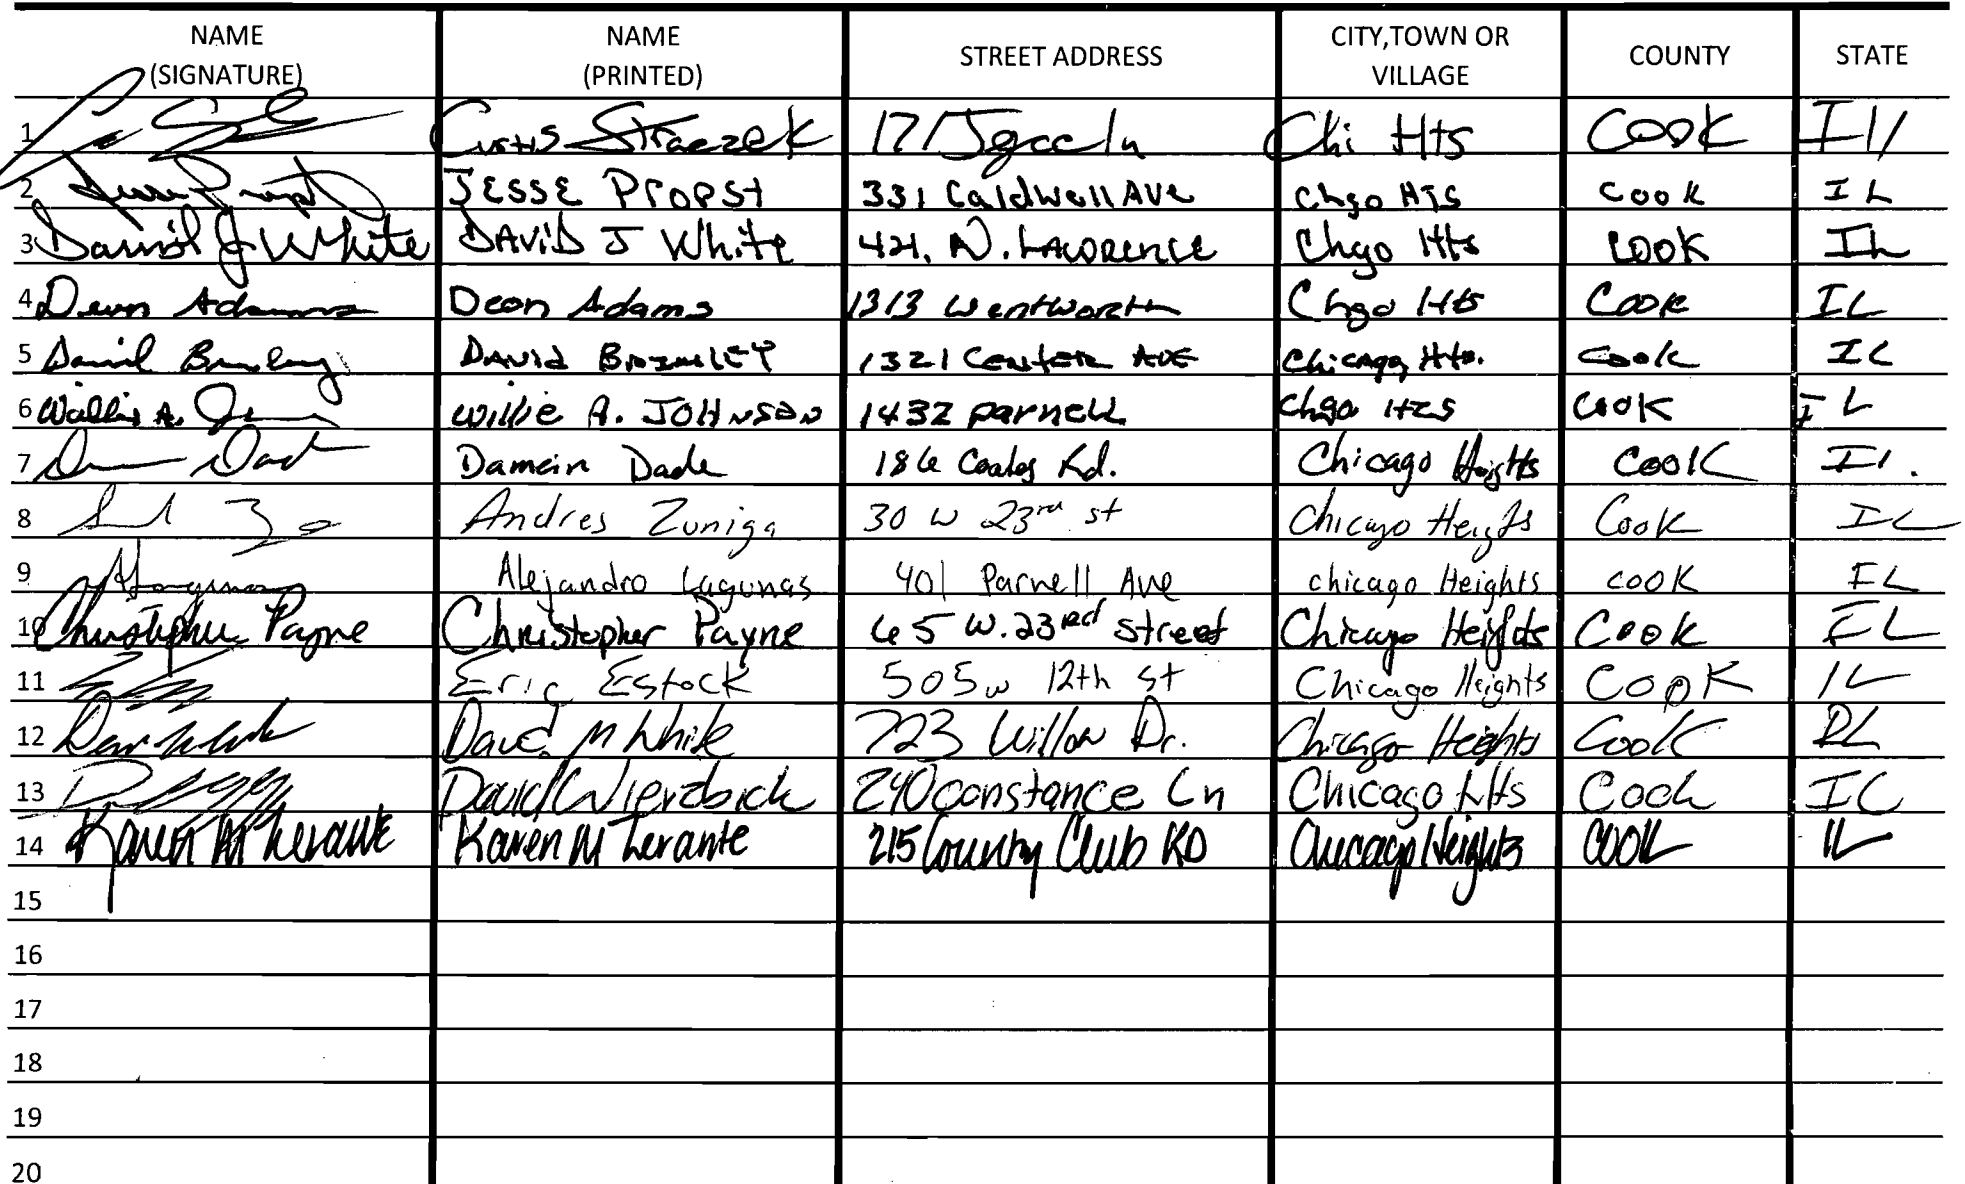 NAME (SIGNATURE) NAME (PRINTED) STREET ADDRESS CITY,TOWN OR VILLAGE COUNTY STATE
1 Curtis Straczek 171 Jgcc ln Chi Hts Cook Ill
2 JESSE Propst 331 Caldwell AVE Chgo HTS Cook IL
3 David J White DAViD J White 421. N. LAWRENCE Chgo Hts COOK IL
4 Deon Adams Deon Adams 1313 Wentworth Chgo Hts Cook IL
5 David DAVID BRIMLEY 1321 CENTER AVE Chicago Hts. Cook IL
6 Willie A. Willie A. JOHNSON 1432 parnell Chgo HTS COOK IL
7 Dade Damein Dade 186 Coales Rd. Chicago Heights Cook Il.
8 Andres Zuniga 30 W 23rd st Chicago Heights Cook IL
9 Alejandro Lagunas 401 Parnell Ave chicago Heights cook IL
10 Christopher Payne Christopher Payne 65 W. 23rd Street Chicago Heights Cook IL
11 Eric Estock 505 w 12th st Chicago Heights Cook IL
12 David M White 723 Willow Dr. Chicago Heights Cook IL
13 David Wierzbicki 240 Constance Ln Chicago Hts Cook IL
14 Karen M Zerante Karen M Zerante 215 Country Club RD Chicago Heights COOK IL
15
16
17
18
19
20